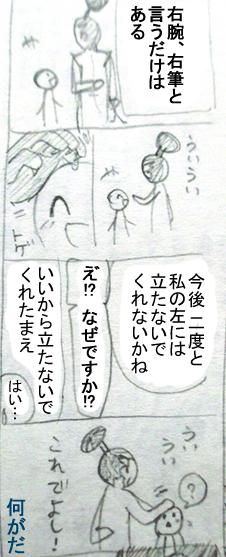 右腕、右筆と
言うだけは
ある
ういうい
トゲ
今後 二度と
私の左には
立たないで
くれないかね
え!? なぜですか!?
いいから立たないで
くれたまえ
はい…
うい
うい
?
これでよし!
何がだ